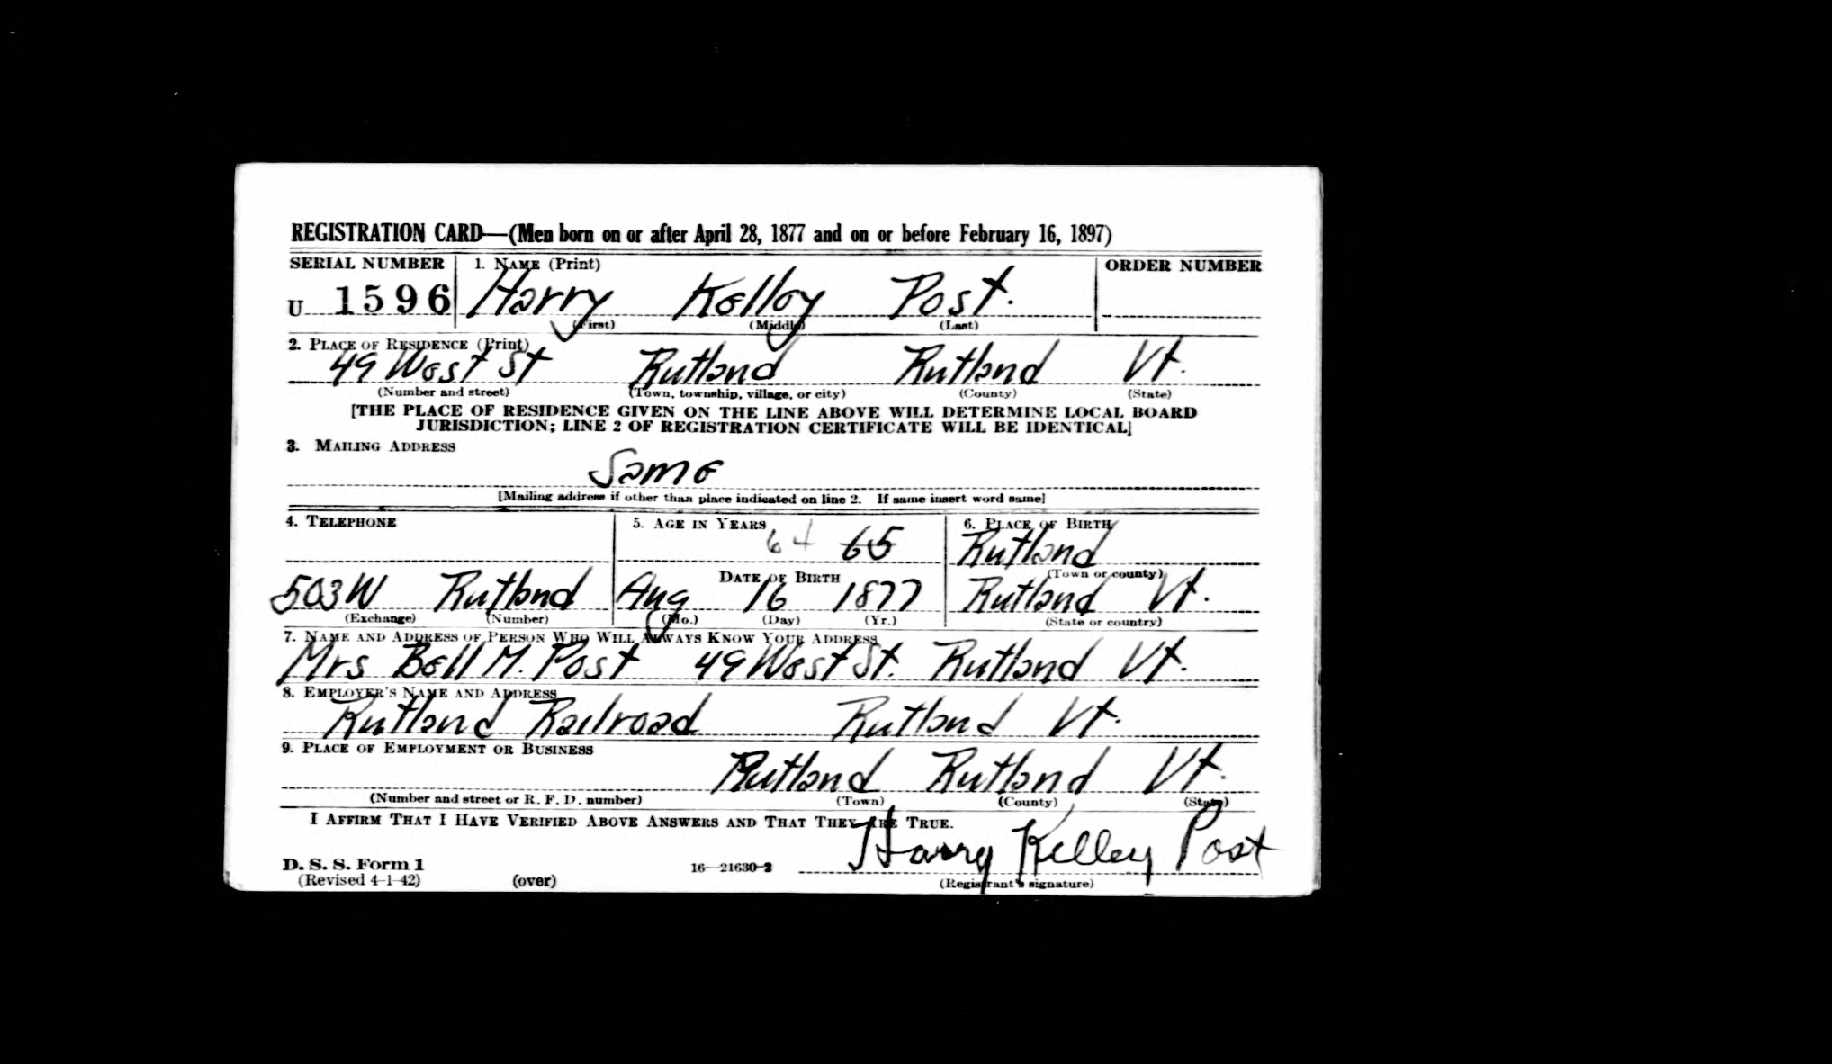 REGISTRATION CARD—(Men born on or after April 28, 1877 and on or before February 16, 1897)
SERIAL NUMBER 1. NAME (Print) ORDER NUMBER
U 1596 Harry Kelley Post.
(First) (Middle) (Last)
2. PLACE OF RESIDENCE (Print)
49 West St Rutland Rutland Vt.
(Number and street) (Town, township, village, or city) (County) (State)
[THE PLACE OF RESIDENCE GIVEN ON THE LINE ABOVE WILL DETERMINE LOCAL BOARD
JURISDICTION; LINE 2 OF REGISTRATION CERTIFICATE WILL BE IDENTICAL]
3. MAILING ADDRESS
Same
[Mailing address if other than place indicated on line 2. If same insert word same]
4. TELEPHONE 5. AGE IN YEARS 6. PLACE OF BIRTH
64 65 Rutland
DATE OF BIRTH (Town or county)
503W Rutland Aug 16 1877 Rutland Vt.
(Exchange) (Number) (Mo.) (Day) (Yr.) (State or country)
7. NAME AND ADDRESS OF PERSON WHO WILL ALWAYS KNOW YOUR ADDRESS
Mrs Bell M. Post 49 West St. Rutland Vt.
8. EMPLOYER'S NAME AND ADDRESS
Rutland Railroad Rutland Vt.
9. PLACE OF EMPLOYMENT OR BUSINESS
Rutland Rutland Vt.
(Number and street or R. F. D. number) (Town) (County) (State)
I AFFIRM THAT I HAVE VERIFIED ABOVE ANSWERS AND THAT THEY ARE TRUE.
Harry Kelley Post
D. S. S. Form 1
(Revised 4-1-42) (over) 16—21630-2 (Registrant's signature)